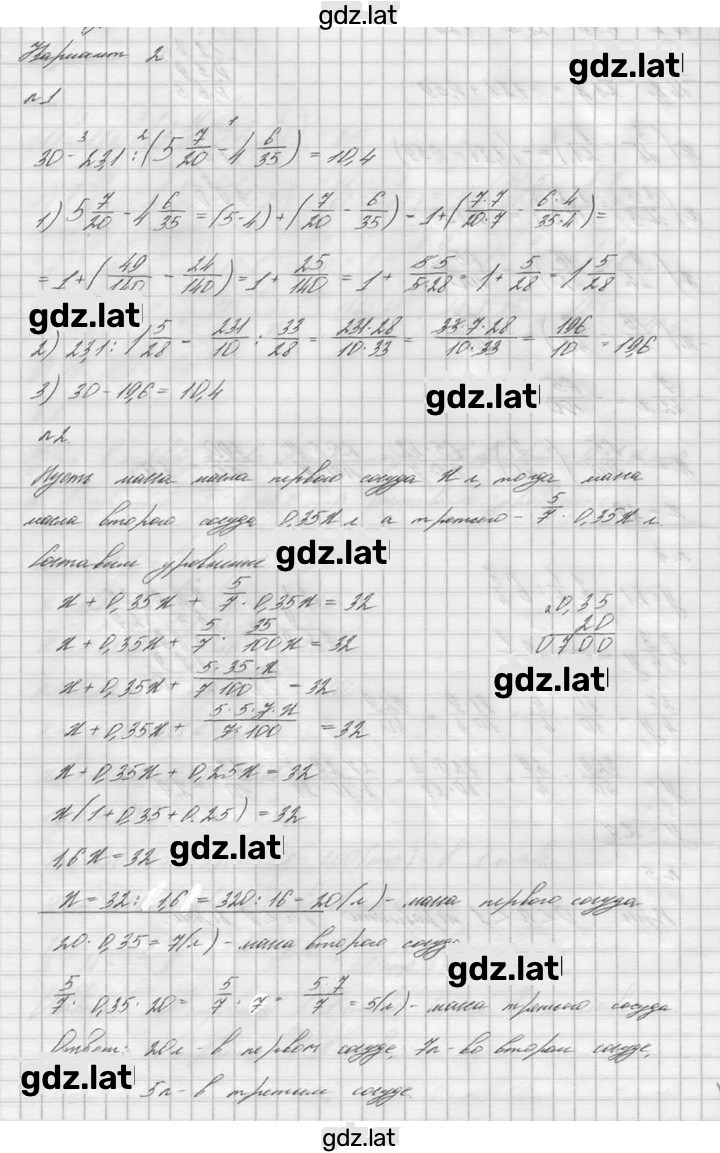 gdz.lat
Вариант 2
gdz.lat
№1
30 - 23,1 : (5 7/20 - 4 6/35) = 10,4
1) 5 7/20 - 4 6/35 = (5-4) + (7/20 - 6/35) = 1 + (7·7/20·7 - 6·4/35·4) =
= 1 + (49/140 - 24/140) = 1 + 25/140 = 1 + 5·5/5·28 = 1 + 5/28 = 1 5/28
gdz.lat
2) 23,1 : 1 5/28 = 231/10 : 33/28 = 231·28/10·33 = 33·7·28/10·33 = 196/10 = 19,6
3) 30 - 19,6 = 10,4
gdz.lat
№2.
Пусть масса масла первого сосуда x л, тогда масса
масла второго сосуда 0,35x л а третьего - 5/7 · 0,35x л.
Составим уровнение
gdz.lat
x + 0,35x + 5/7 · 0,35x = 32
0,35
x + 0,35x + 5/7 · 35/100 x = 32
20
0700
x + 0,35x + 5·35·x/7·100 = 32
gdz.lat
x + 0,35x + 5·5·7·x/7·100 = 32
x + 0,35x + 0,25x = 32
x(1 + 0,35 + 0,25) = 32
1,6x = 32
gdz.lat
x = 32 : 1,6 = 320 : 16 = 20(л) - масса первого сосуда
20 · 0,35 = 7(л) - масса второго сосуд.
gdz.lat
5/7 · 0,35 · 20 = 5/7 · 7 = 5·7/7 = 5(л) - масса третьего сосуда.
Ответ: 20л - в первом сосуде, 7л - во втором сосуде,
gdz.lat
5л - в третьем сосуде.
gdz.lat